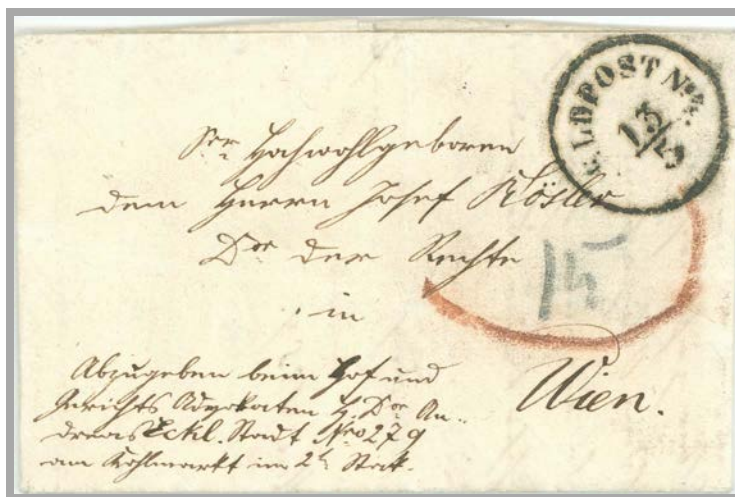 FELDPOST No 4.
13/5
Sr Hochwohlgeboren
dem Herrn Josef Rösler
Dor der Rechte
15
in
Wien.
Abzugeben beim Hof und
Gerichts Advokaten H. Dor An-
dreas Eckl. Stadt Nro 279
am Kohlmarkt im 2t Stok.